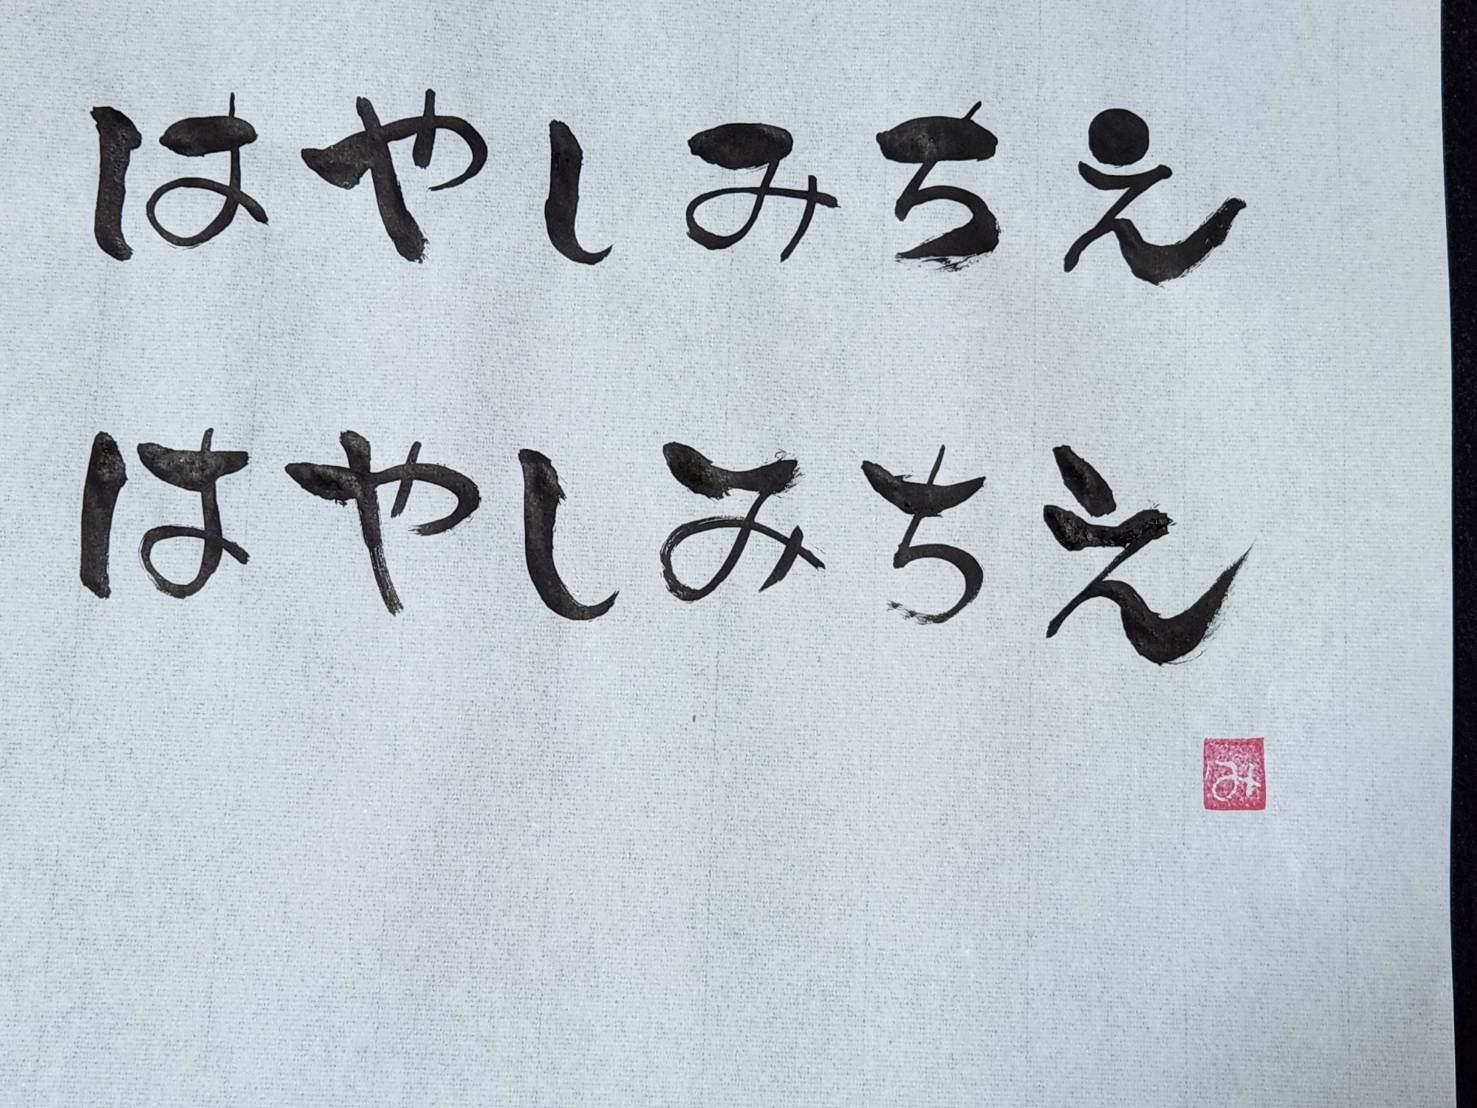 はやしみちえ
はやしみちえ
み